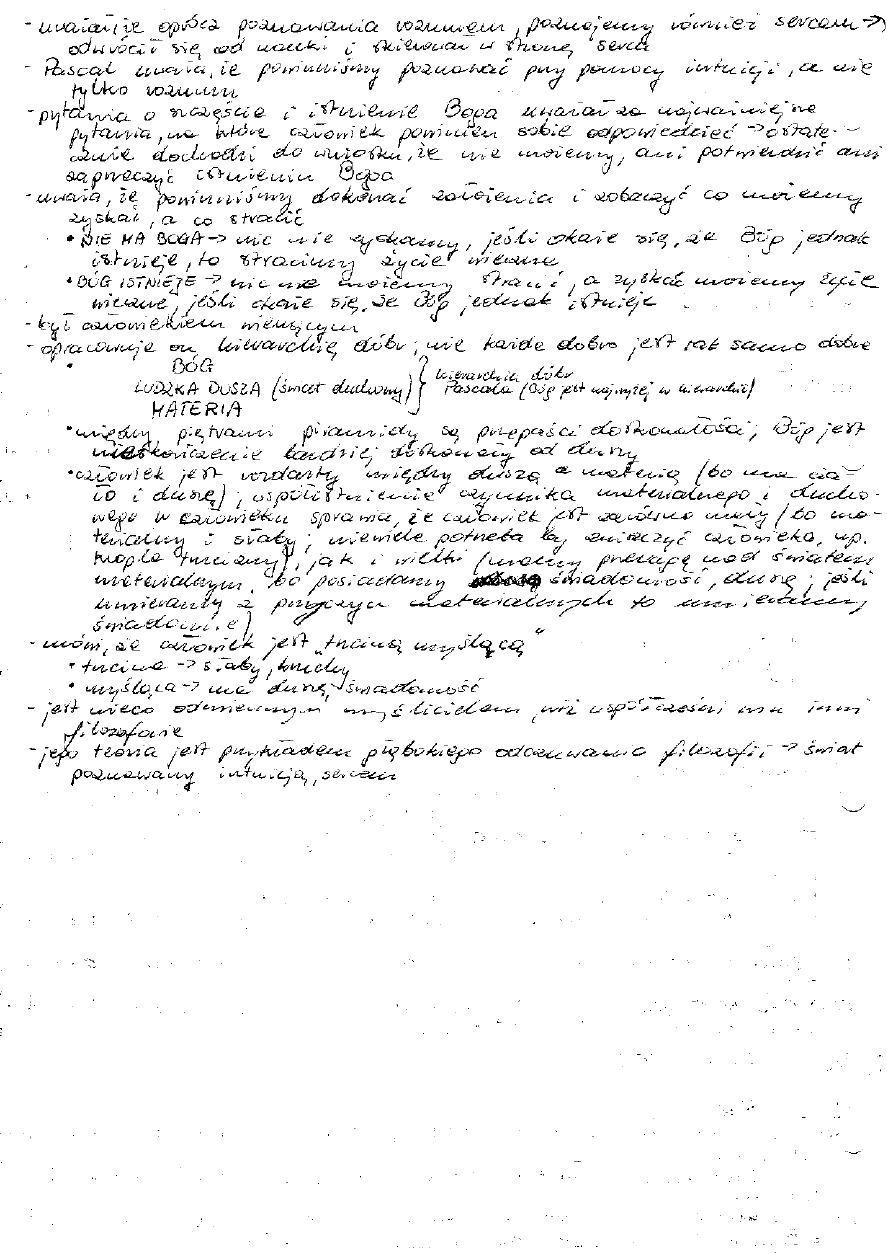 - uważał, że oprócz poznawania rozumem, poznajemy również sercem →
odwrócił się od nauki i skierował w stronę serca
- Pascal uważa, że powinniśmy poznawać przy pomocy intuicji, a nie
tylko rozumu
- pytania o szczęście i istnienie Boga uważał za najważniejsze
pytania, na które człowiek powinien sobie odpowiedzieć → ostate-
cznie dochodzi do wniosku, że nie możemy, ani potwierdzić ani
zaprzeczyć istnieniu Boga
- uważa, że powinniśmy dokonać założenia i zobaczyć co możemy
zyskać, a co stracić
• NIE MA BOGA → nic nie zyskamy, jeśli okaże się, że Bóg jednak
istnieje, to stracimy życie wieczne
• BÓG ISTNIEJE → nic nie możemy stracić, a zyskać możemy życie
wieczne, jeśli okaże się, że Bóg jednak istnieje
- był człowiekiem wierzącym
- opracowuje on hierarchię dóbr; nie każde dobro jest tak samo dobre
• BÓG
LUDZKA DUSZA (świat duchowy) } hierarchia dóbr
Pascala (Bóg jest najwyżej w hierarchii)
MATERIA
• między piętrami piramidy są przepaści doskonałości; Bóg jest
nieskończenie bardziej doskonały od duszy
• człowiek jest rozdarty między duszą a materią (bo ma cia-
ło i duszę); współistnienie czynnika materialnego i ducho-
wego w człowieku sprawia, że człowiek jest zarówno mały (bo ma-
terialny i słaby; niewiele potrzeba by zniszczyć człowieka, np.
kropla trucizny), jak i wielki (mamy przewagę nad światem
materialnym, bo posiadamy świadomość, duszę; jeśli
umieramy z przyczyn materialnych to umieramy
świadomie)
- mówi, że człowiek jest „trzciną myślącą"
• trzcina → słaby, kruchy
• myśląca → ma duszę, świadomość
- jest nieco odmiennym myślicielem, niż współcześni mu inni
filozofowie
- jego teoria jest przykładem głębokiego odczuwania filozofii → świat
poznawany intuicją, sercem